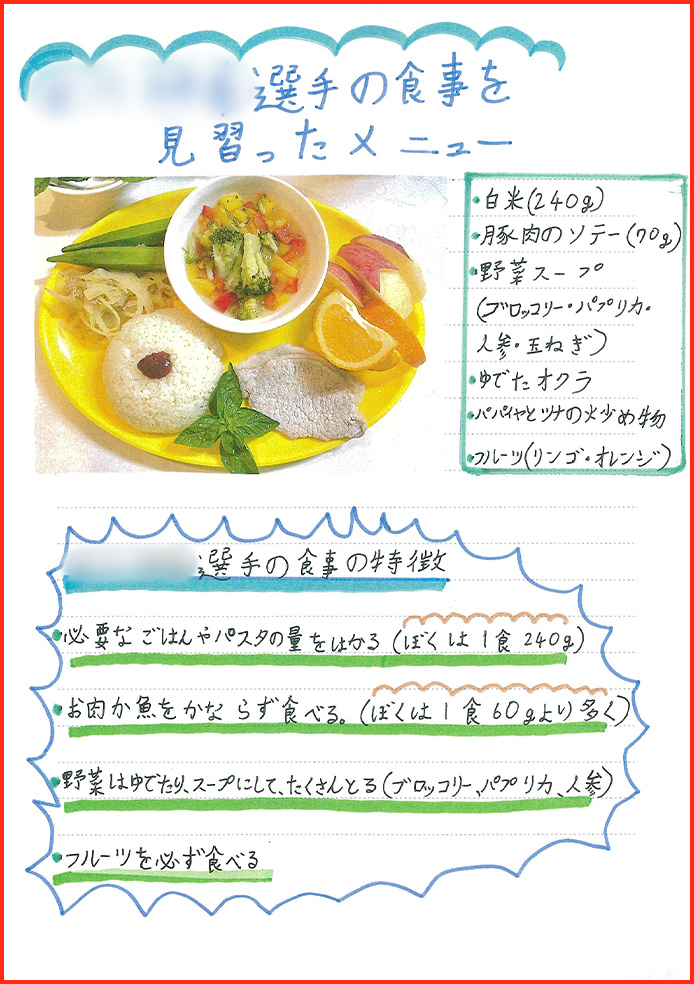 選手の食事を
見習ったメニュー
・白米(240g)
・豚肉のソテー(70g)
・野菜スープ
(ブロッコリー・パプリカ・
人参・玉ねぎ)
・ゆでたオクラ
・パパイヤとツナの火少め物
・フルーツ(リンゴ・オレンジ)
選手の食事の特徴
・必要なごはんやパスタの量をはかる(ぼくは1食240g)
・お肉か魚をかならず食べる。(ぼくは1食60gより多く)
・野菜はゆでたり、スープにして、たくさんとる(ブロッコリー、パプリカ、人参)
・フルーツを必ず食べる